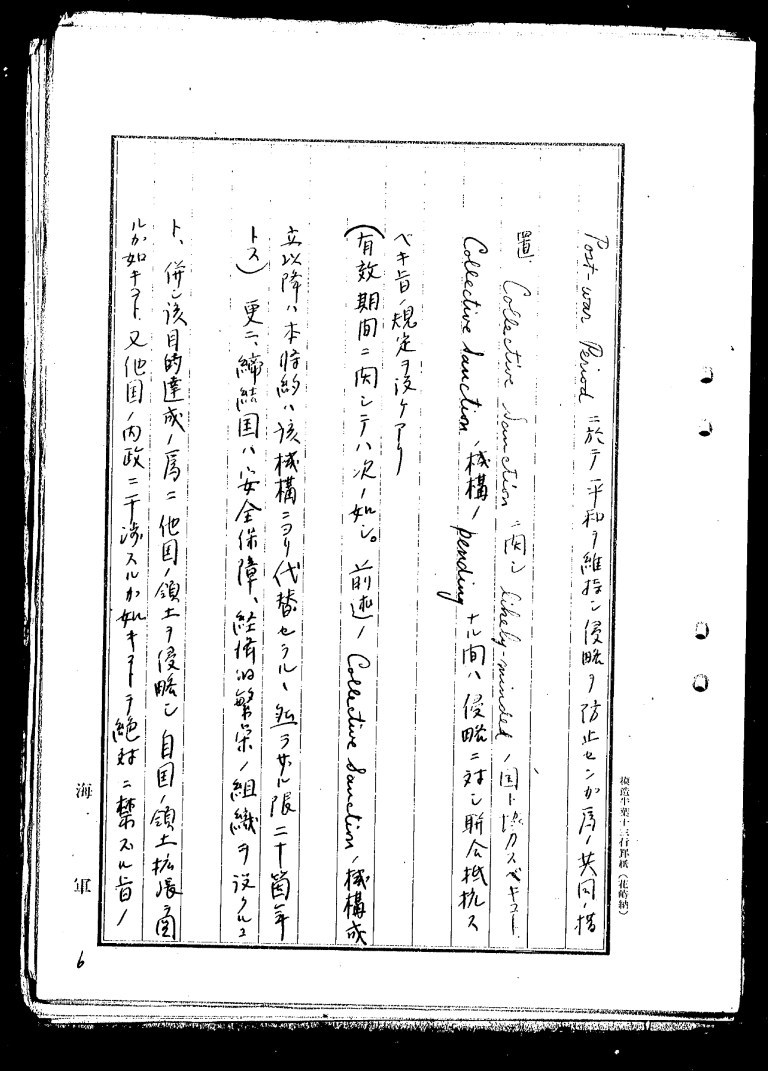 Post-war Period ニ於テ平和ヲ維持シ侵略ヲ防止センガ為ノ共同ノ措
置 Collective Sanction ニ関シ likely-minded ノ国ト協力スベキコト、
Collective Sanction ノ機構ノ pending ナル間ハ侵略ニ対シ聯合抵抗ス
ベキ旨ノ規定ヲ設ケアリ
(有效期間ニ関シテハ次ノ如シ。前述ノ Collective Sanction ノ機構成
立以降ハ本特約ハ該機構ニヨリ代替セラル、然ラザル限二十箇年
トス) 更ニ、締結国ハ安全保障、経済的繁栄ノ組織ヲ設クルコ
ト、併シ該目的達成ノ為ニ他国ノ領土ヲ侵略シ自国ノ領土拡張ヲ図
ルガ如キコト又他国ノ内政ニ干渉スルガ如キコトヲ絶対ニ禁ズル旨ノ
海軍
6